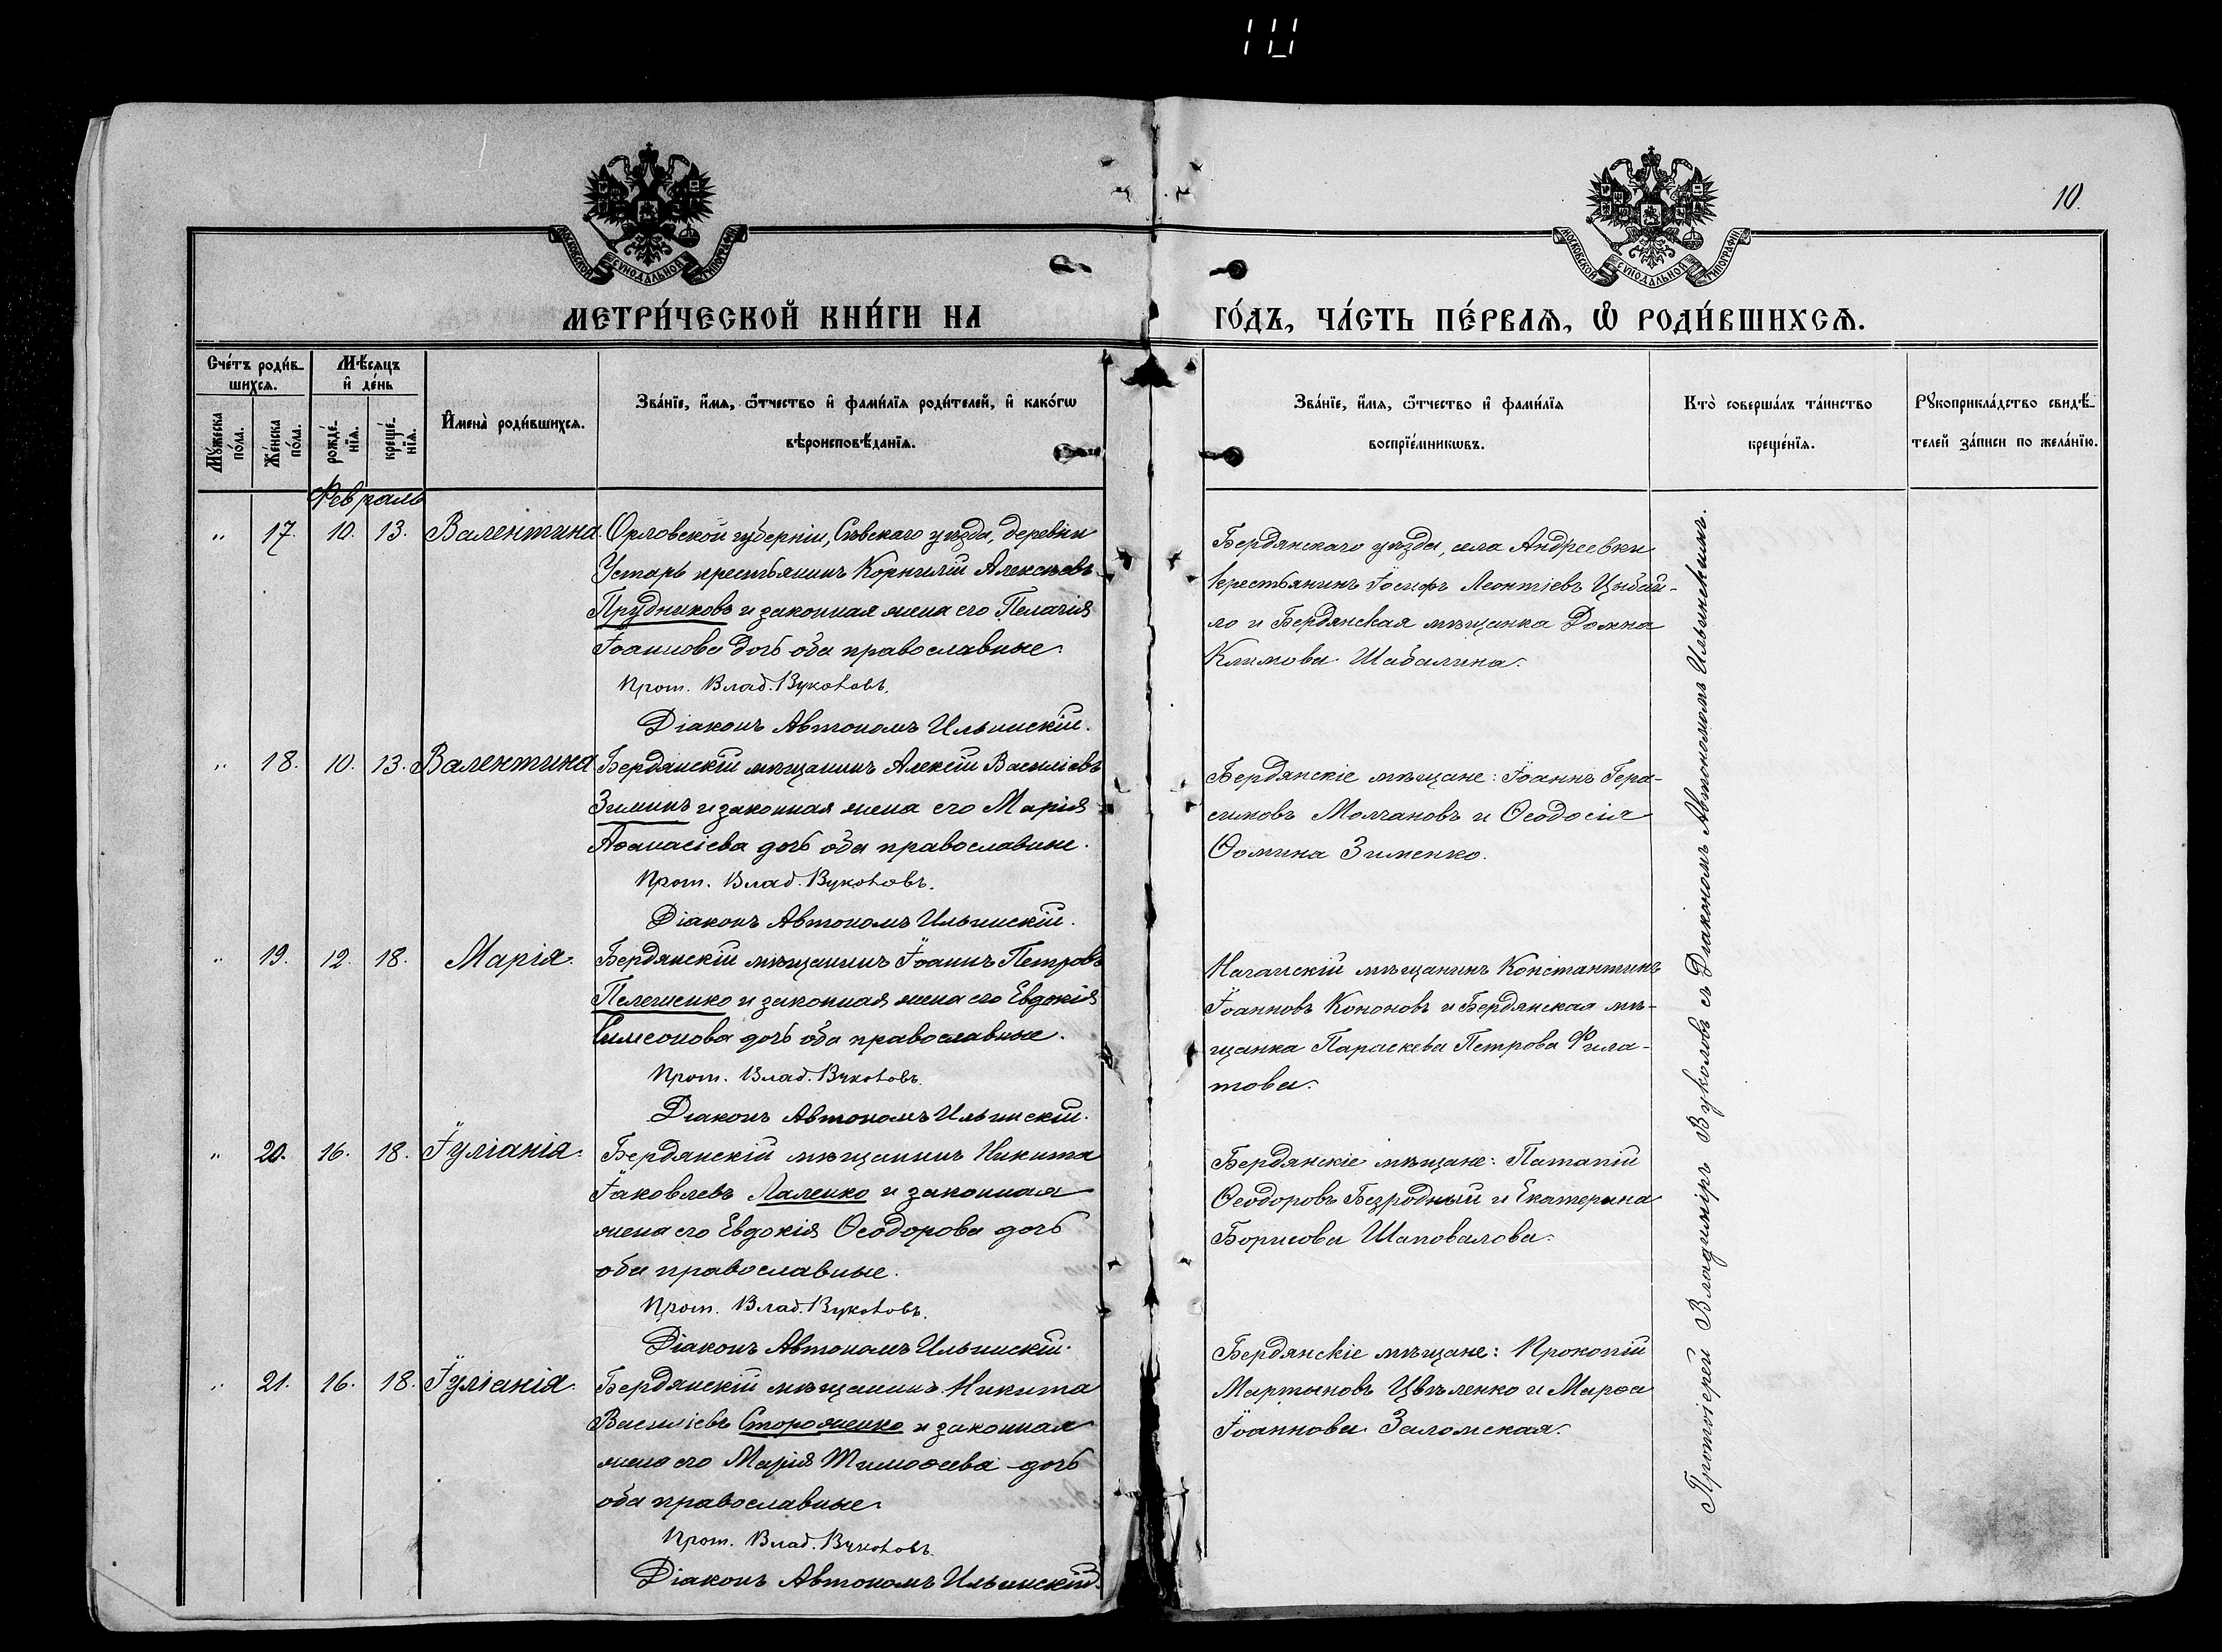 10.
МОСКОВСКОЙ СѴНОДАЛЬНОЙ ТИПОГРАФІИ
МОСКОВСКОЙ СѴНОДАЛЬНОЙ ТИПОГРАФІИ
МЕТРИ́ЧЕСКОЙ КНИ́ГИ НА ГО́ДЪ, ЧА́СТЬ ПЕ́РВАѦ, Ѡ҆ РОДИ́ВШИХСѦ.
Сче́тъ роди́в-
шихсѧ.
Мꙋ́жеска по́ла.
Же́нска по́ла.
Мѣ́сѧцъ
и҆ де́нь
рожде́-
нїѧ.
креще́-
нїѧ.
И҆мена̀ роди́вшихсѧ.
Зва́нїе, и҆́мѧ, ѻ҆́тчество и҆ фами́лїѧ роди́телей, и҆ како́гѡ
вѣроисповѣ́данїѧ.
Зва́нїе, и҆́мѧ, ѻ҆́тчество и҆ фами́лїѧ
воспрїе́мникѡвъ.
Кто̀ соверша́лъ та́инство
креще́нїѧ.
Рꙋкоприкла́дство свидѣ́-
телей за́писи по жела́нїю.
Февраль
„ 17. 10. 13. Валентина.
Орловской губерніи, Сѣвскаго уѣзда, деревни
Устарь крестьянинъ Корнилій Алексѣевъ
Прудниковъ и законная жена его Пелагія
Іоаннова дочь оба православные.
Прот. Влад. Вуколовъ.
Діаконъ Автономъ Ильинскій.
Бердянскаго уѣзда, села Андреевки
крестьянинъ Іосифъ Леонтіевъ Цибай-
ло и Бердянская мѣщанка Домна
Климова Шабалина.
„ 18. 10. 13. Валентина
Бердянскій мѣщанинъ Алексій Василіевъ
Зиминъ и законная жена его Марія
Аѳанасіева дочь оба православные.
Прот. Влад. Вуколовъ.
Діаконъ Автономъ Ильинскій.
Бердянскіе мѣщане: Іоаннъ Гера-
симовъ Молчановъ и Ѳеодосія
Ѳомина Зименко.
„ 19. 12. 18. Марія.
Бердянскій мѣщанинъ Іоаннъ Петровъ
Пелешенко и законная жена его Евдокія
Симеонова дочь оба православные.
Прот. Влад. Вуколовъ.
Діаконъ Автономъ Ильинскій.
Ногайскій мѣщанинъ Константинъ
Іоанновъ Кононовъ и Бердянская мѣ-
щанка Параскева Петрова Фила-
това.
„ 20. 16. 18. Іуліанія.
Бердянскій мѣщанинъ Никита
Іаковлевъ Лаленко и законная
жена его Евдокія Ѳеодорова дочь
оба православные.
Прот. Влад. Вуколовъ.
Діаконъ Автономъ Ильинскій.
Бердянскіе мѣщане: Патапій
Ѳеодоровъ Безродный и Екатерина
Борисова Шаповалова.
„ 21. 16. 18. Іуліанія.
Бердянскій мѣщанинъ Никита
Василіевъ Стороженко и законная
жена его Марія Тимоѳеева дочь
оба православные.
Прот. Влад. Вуколовъ.
Діаконъ Автономъ Ильинскій.
Бердянскіе мѣщане: Прокопій
Мартыновъ Цвѣленко и Марѳа
Іоаннова Заломская.
Протоіерей Владиміръ Вуколовъ съ Діакономъ Автономомъ Ильинскимъ.